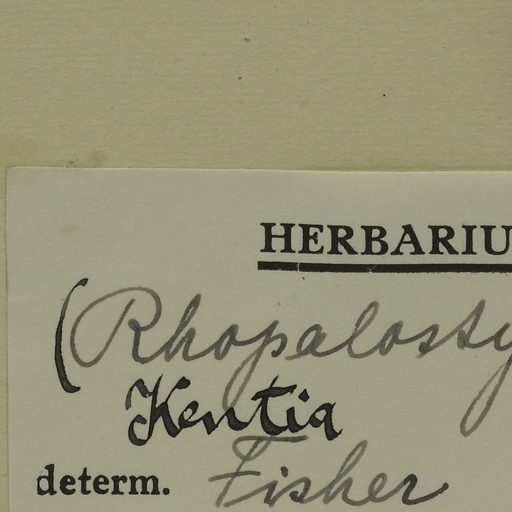 HERBARIU
(Rhopalosty
Kentia
determ. Fisher